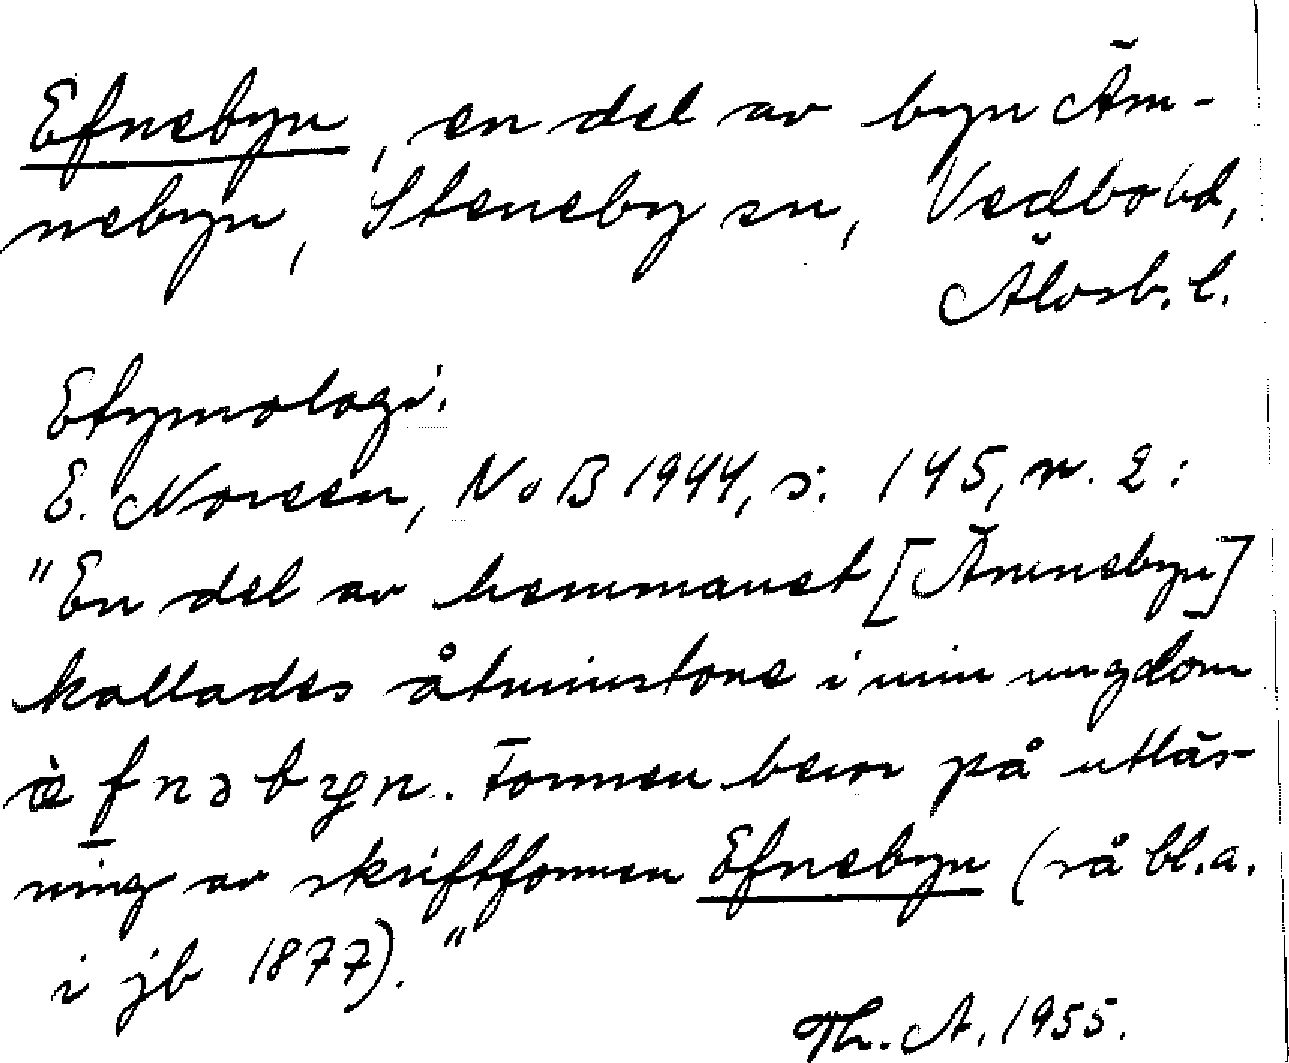 Efnebyn, en del av byn Äm-
nebyn, Steneby sn, Vedbo hd,
Älvsb. l.
Etymologi:
E. Noreen, NoB 1944, s. 145, n. 2:
"En del av hemmanet [Ämnebyn]
kallades åtminstone i min ungdom
æ̀fnəbyn. Formen beror på utläs-
ning av skriftformen Efnebyn (så bl.a.
i jb 1877)."
Th. A. 1955.